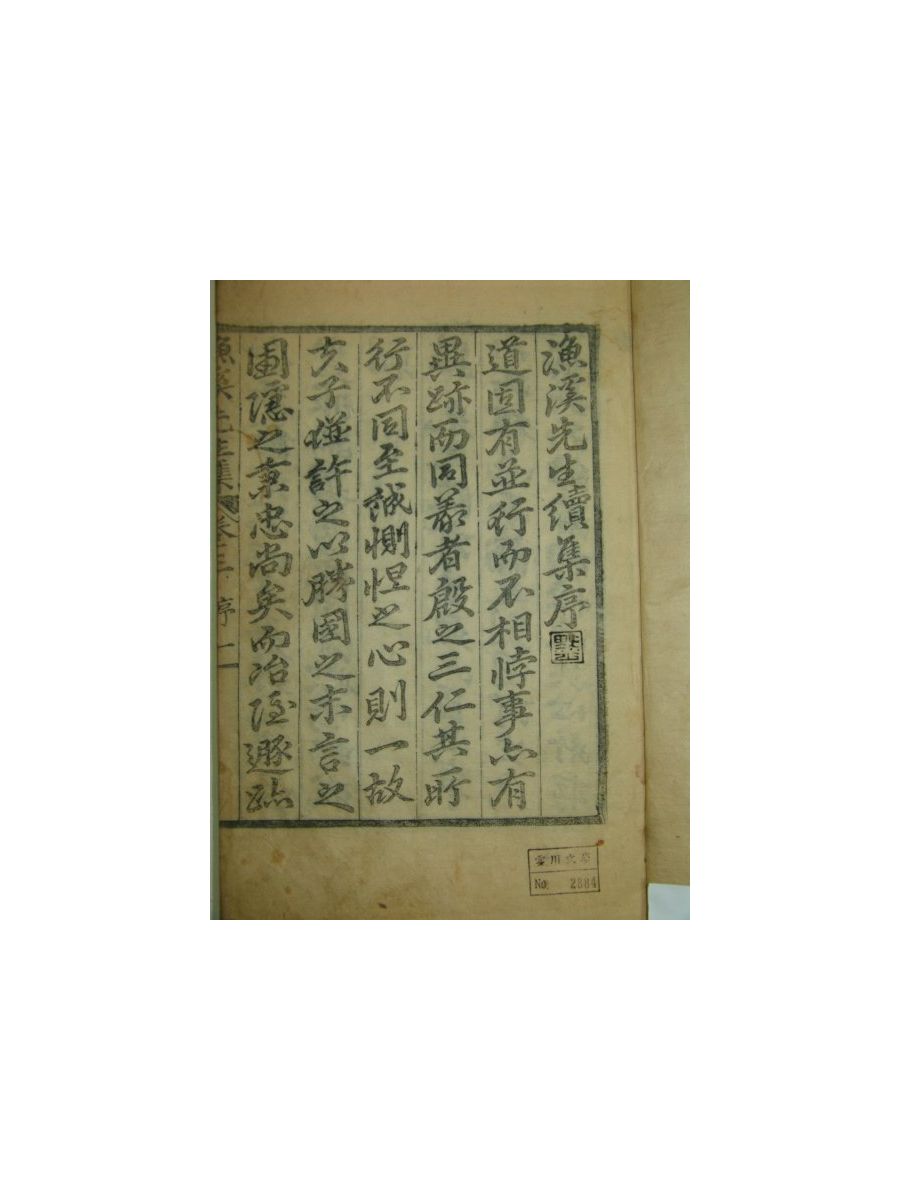 漁溪先生續集序
道固有並行而不相悖事亦有
異跡而同義者殷之三仁其所
行不同至誠惻怛之心則一故
夫子並許之以勝國之末言之
圃隱之秉忠尚矣而冶隱遯跡
漁溪先生集 卷三 序 一
No. 2884